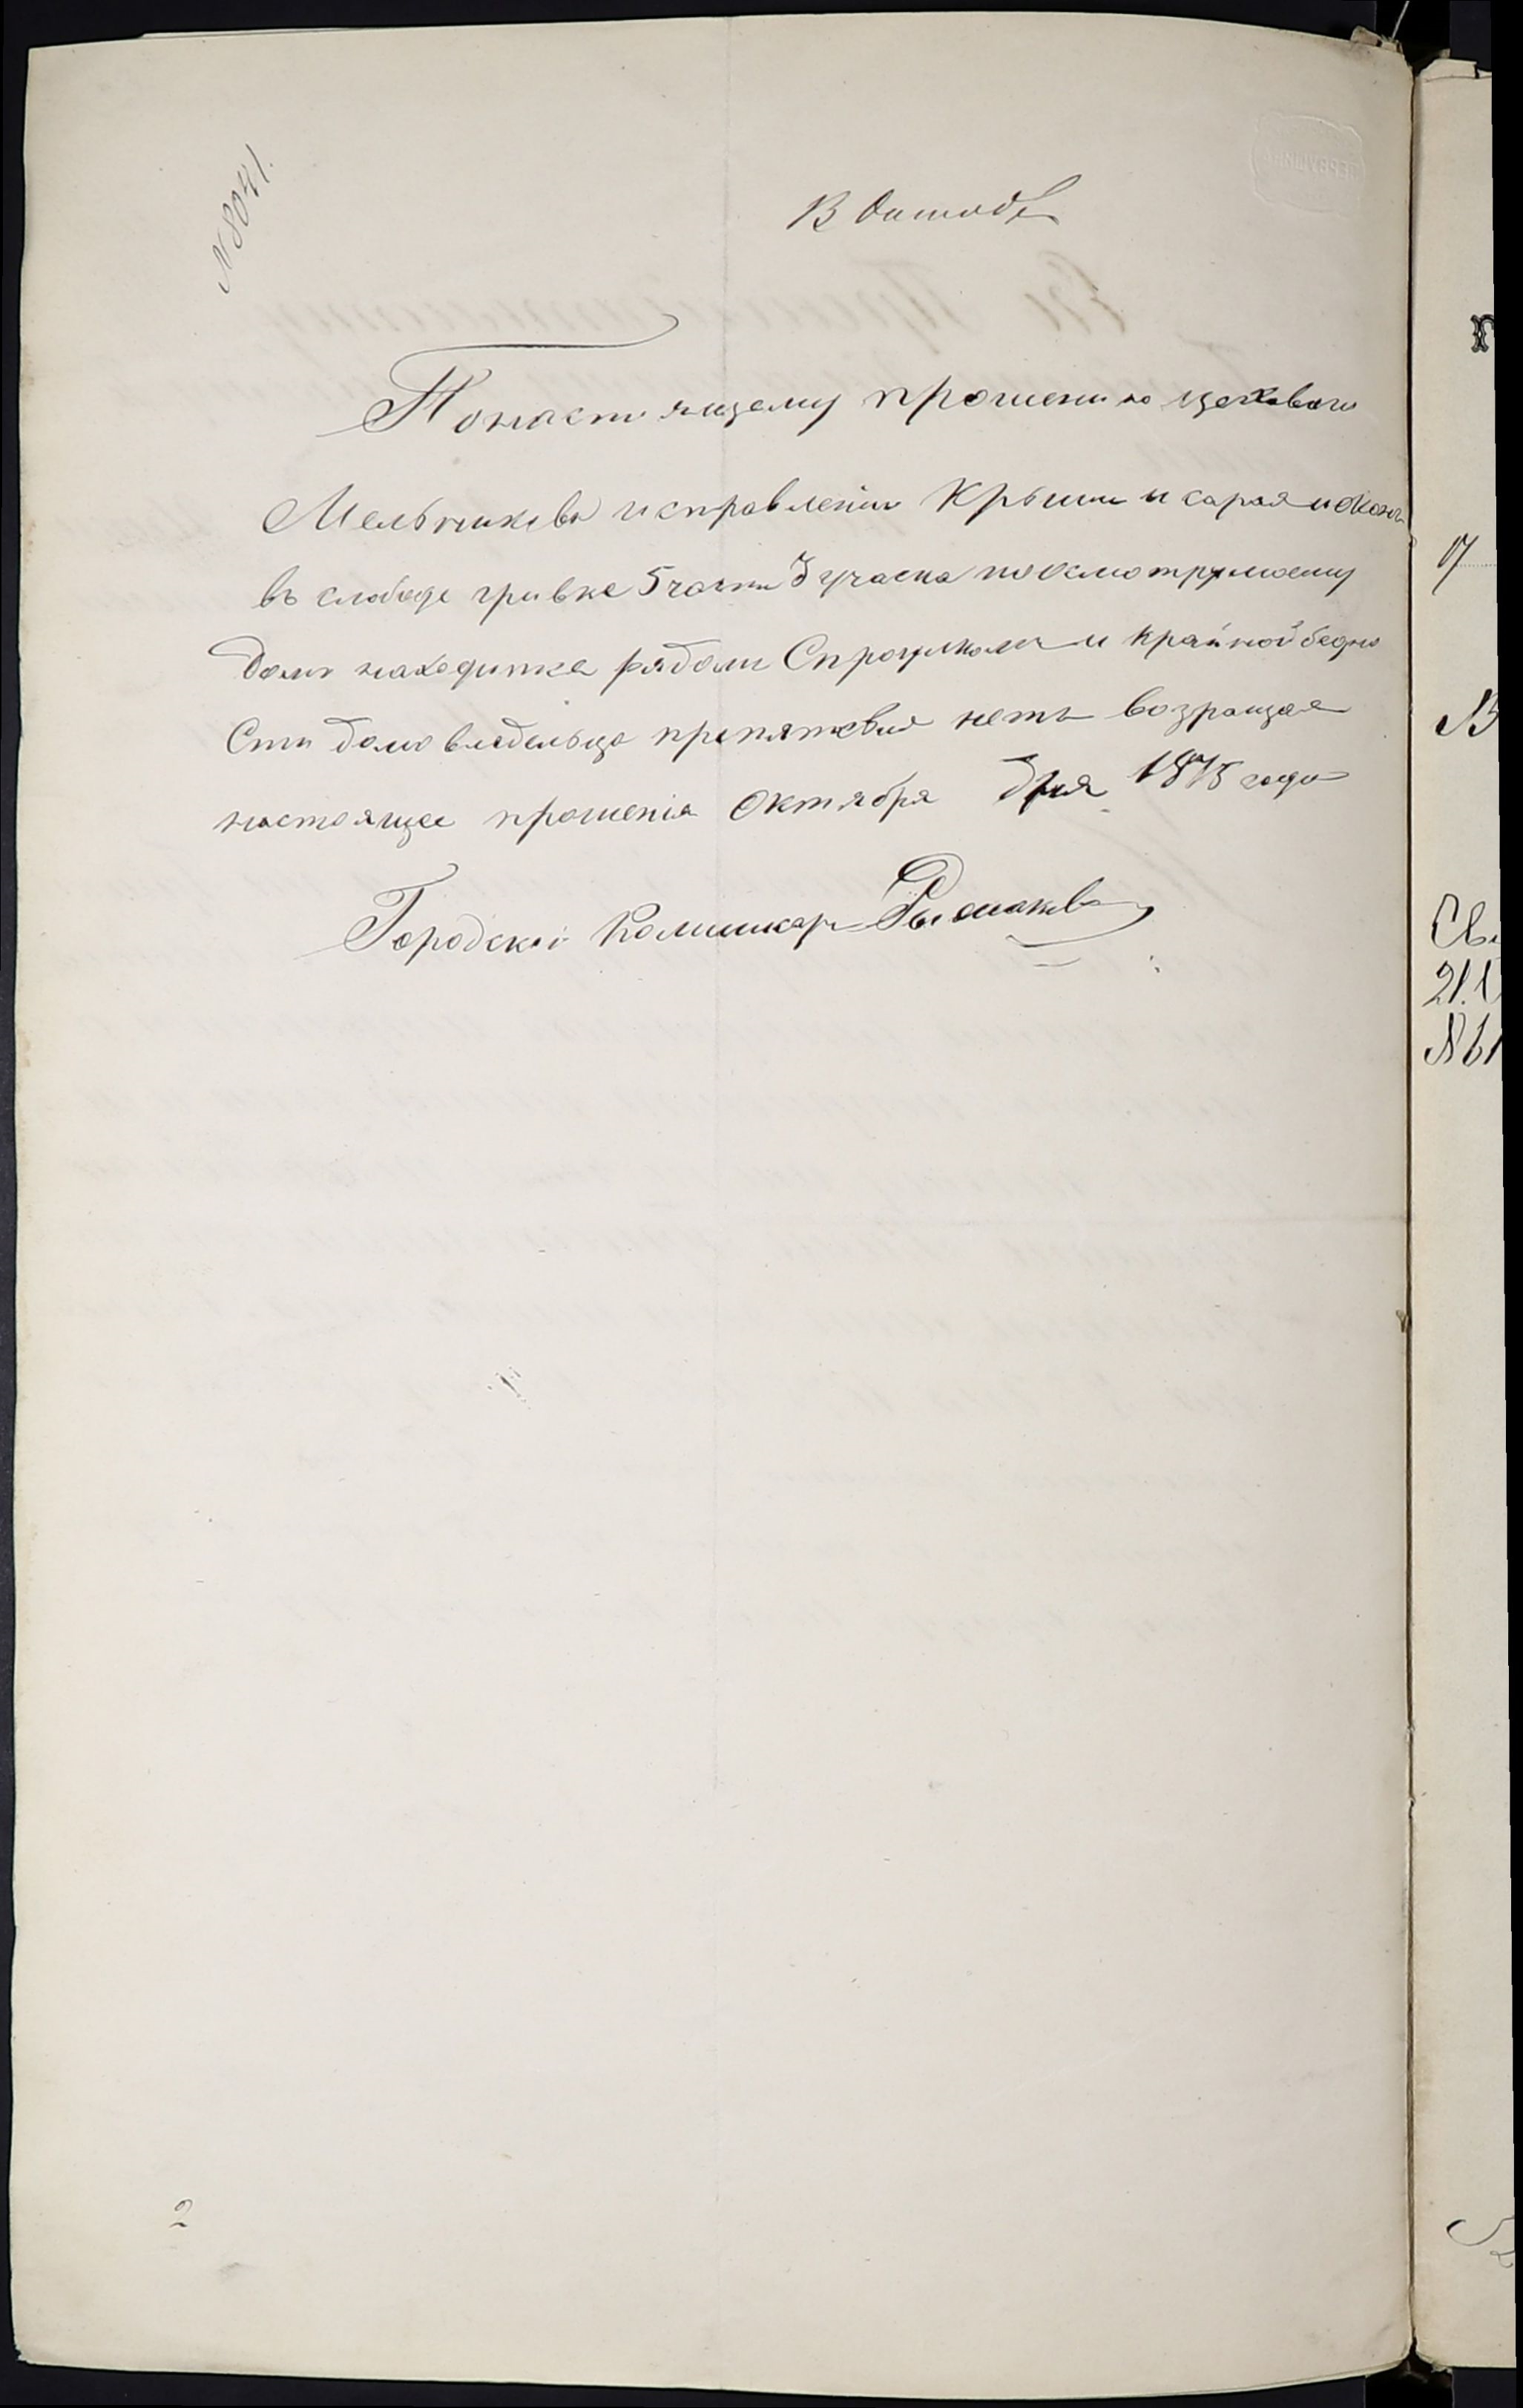 № 8041.
Понастоящему прошению цеховаго
Мельникова исправлении Крыши и сарая и окон
въ слободе гривке 5 части 3 учаска поосмотру моему
домъ находитса рядомъ С проулкомъ и крайной бедно
Сти домовладельца препятсвия нетъ возращая
настоящее прошенія Октября дня 1875 года
Городскі Комиссар
2